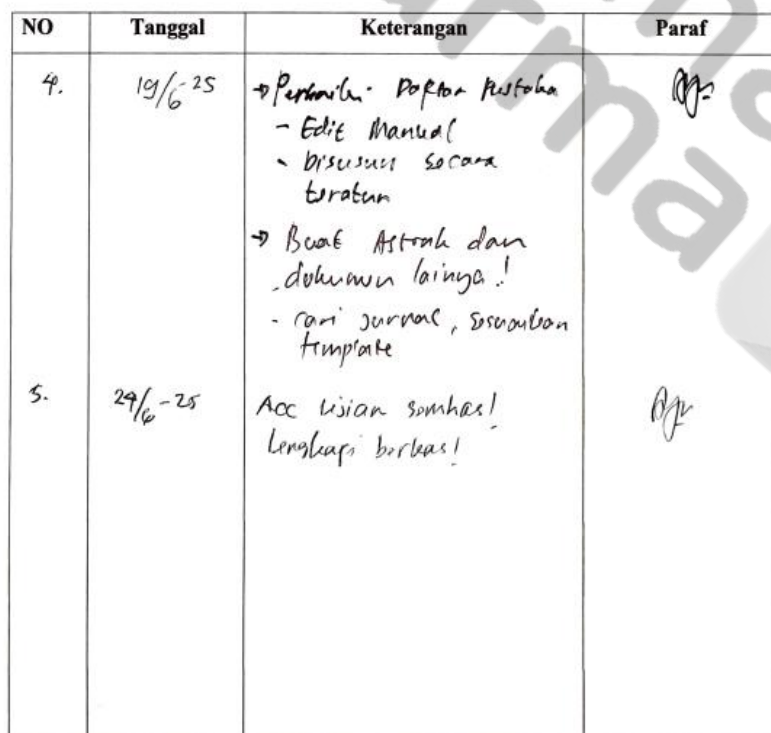 NO Tanggal Keterangan Paraf
4. 19/6-25 → Perbaiki Daftar Pustaka
- Edit Manual
- Disusun secara
teratur
→ Buat Astrak dan
dokumen lainya!
- cari jurnal, sesuaikan
template
5. 24/6-25 Acc Ujian semhas!
lengkapi berkas!